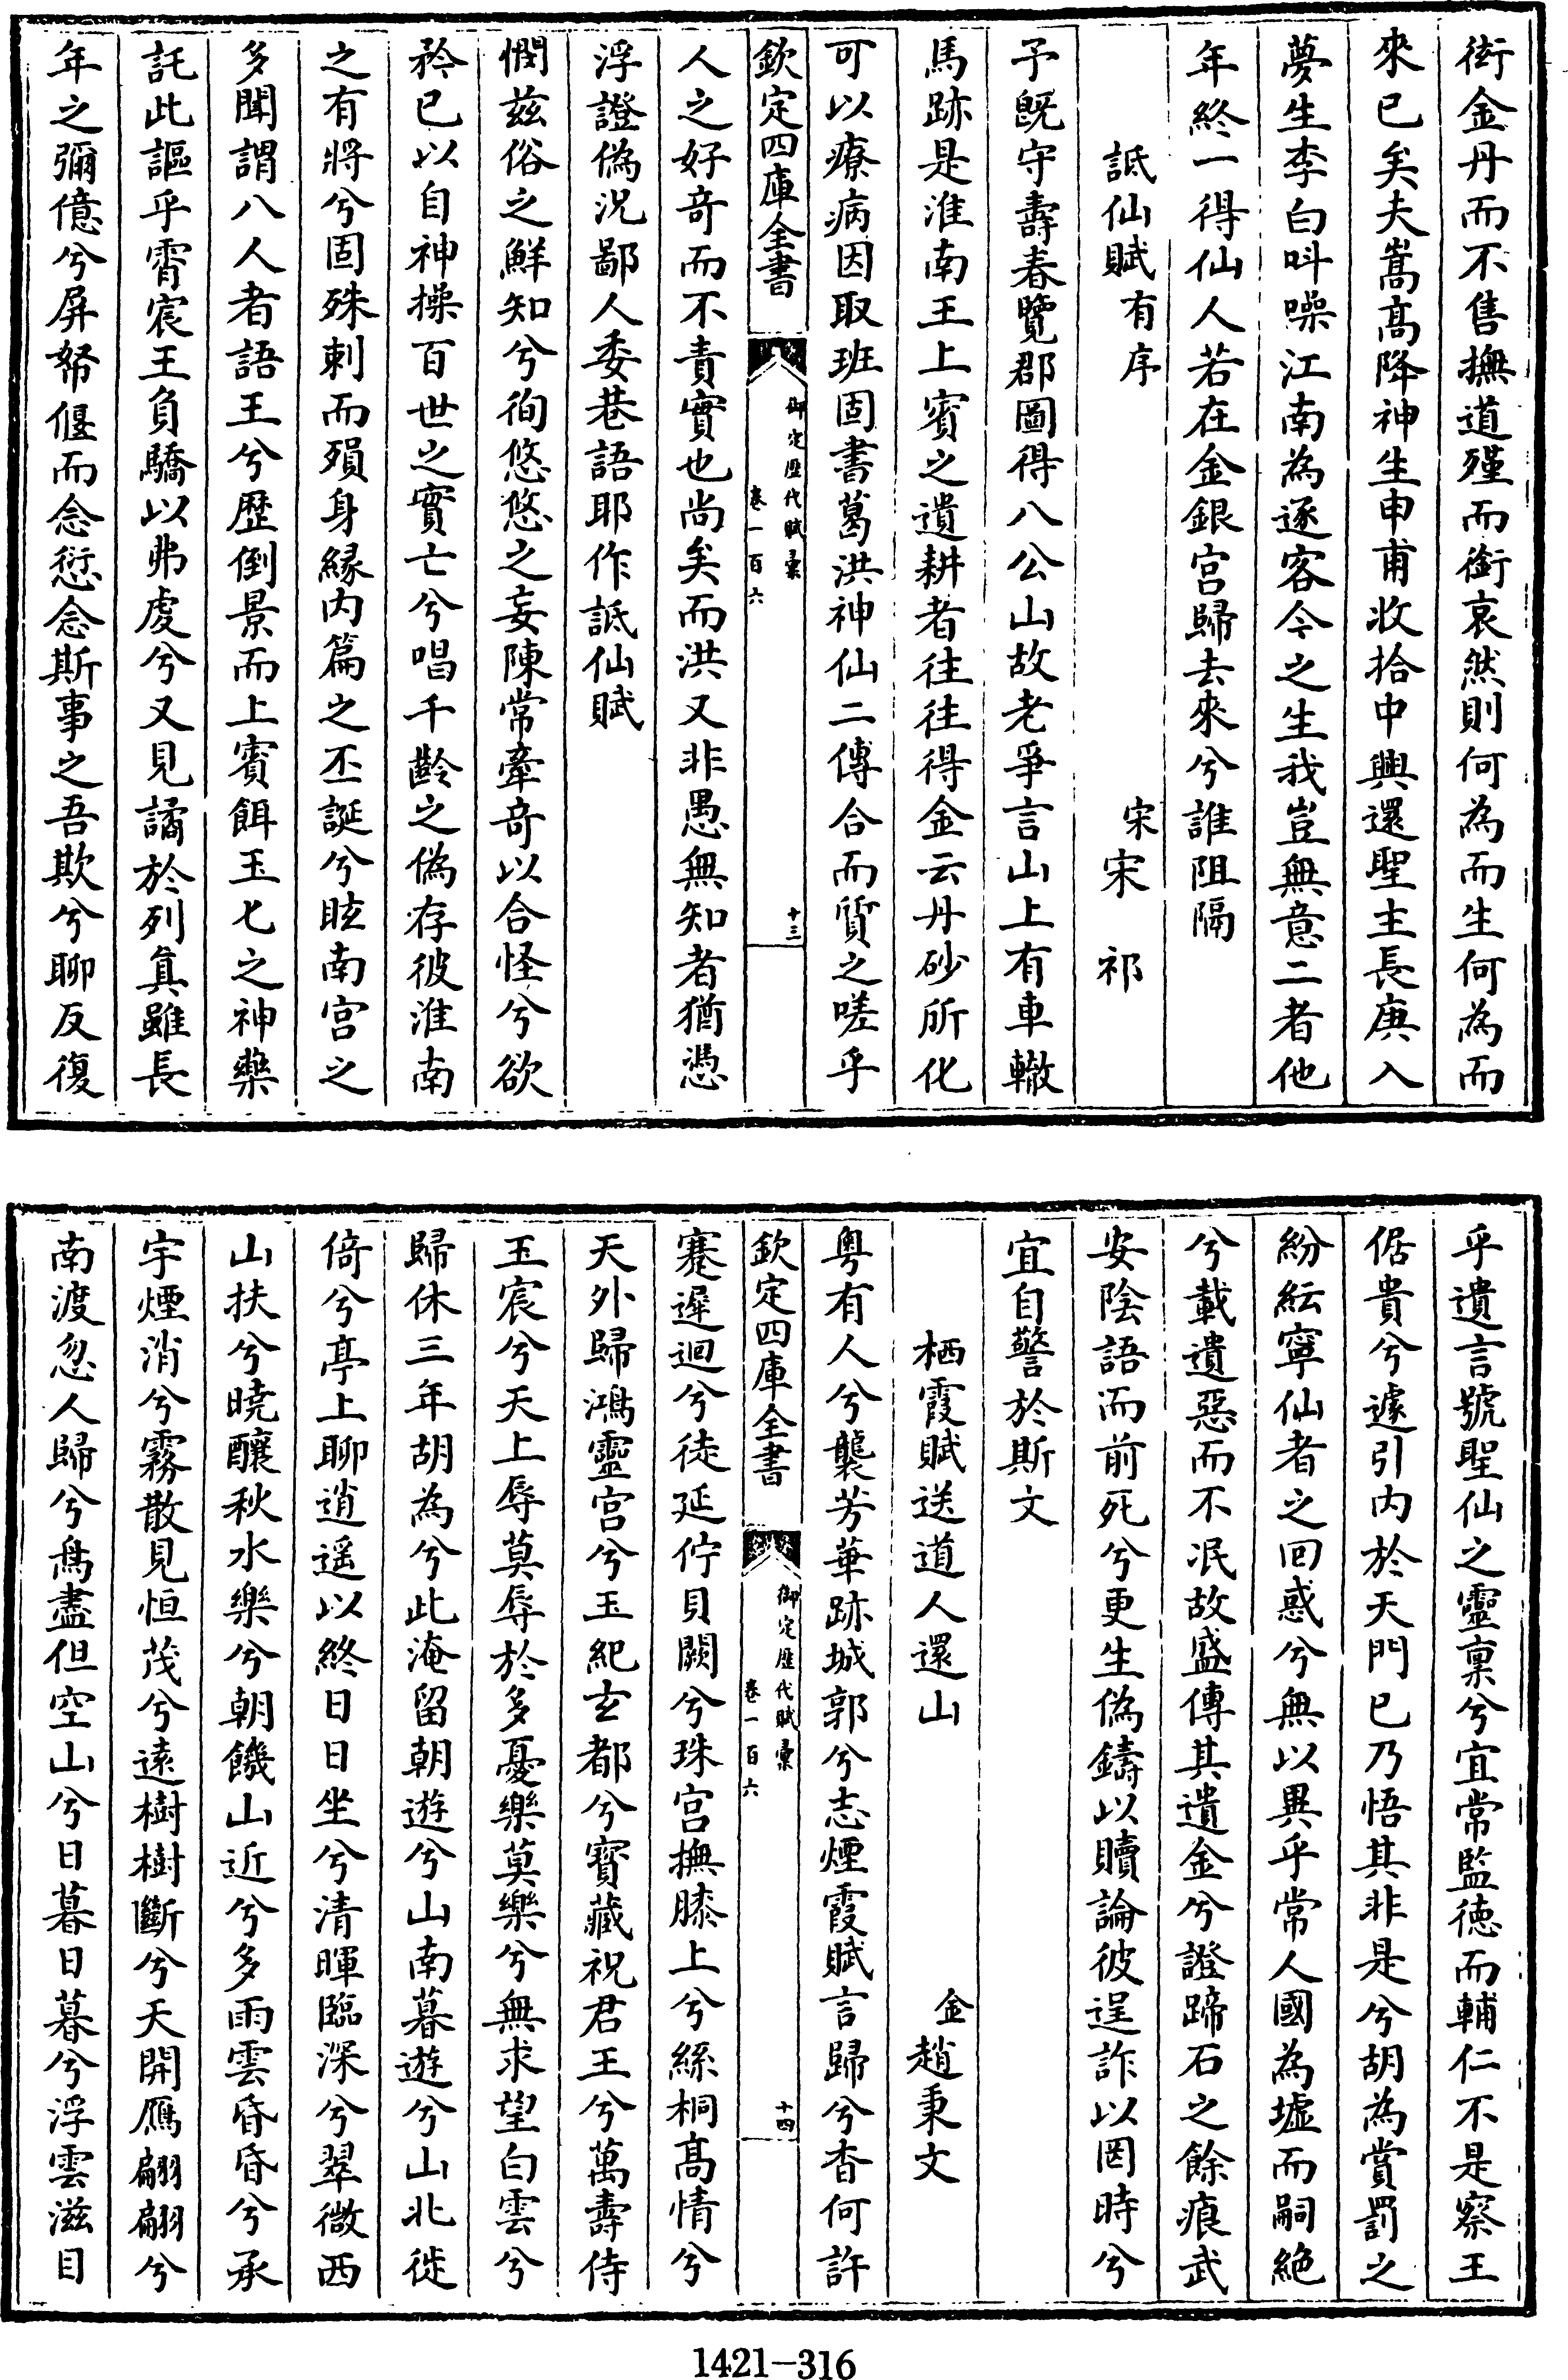 衒金丹而不售撫道殣而銜哀然則何為而生何為而
來已矣夫嵩髙降神生申甫收拾中興還聖主長庚入
夢生李白呌噪江南為逐客今之生我豈無意二者他
年終一得仙人若在金銀宫歸去來兮誰阻隔
詆仙賦有序 宋宋祁
予旣守壽春覽郡圖得八公山故老爭言山上有車轍
馬跡是淮南王上賓之遺耕者往往得金云丹砂所化
可以療病因取班固書葛洪神仙二傳合而質之嗟乎
欽定四庫全書 御定歴代賦彚 卷一百六 十三
人之好竒而不責實也尚矣而洪又非愚無知者猶憑
浮證偽況鄙人委巷語耶作詆仙賦
憫兹俗之鮮知兮徇悠悠之妄陳常牽竒以合怪兮欲
矜已以自神操百世之實亡兮唱千齡之偽存彼淮南
之有將兮固殊刺而殞身緣内篇之丕誕兮眩南宫之
多聞謂八人者語王兮歴倒景而上賓餌玉七之神藥
託此謳乎霄宸王負驕以弗虔兮又見譎於列真雖長
年之彌億兮屏帑偃而念愆念斯事之吾欺兮聊反復
乎遺言號聖仙之靈稟兮宜常監德而輔仁不是察王
倨貴兮遽引内於天門已乃悟其非是兮胡為賞罰之
紛紜寜仙者之回惑兮無以異乎常人國為墟而嗣絶
兮載遺惡而不泯故盛傳其遺金兮證蹄石之餘痕武
安陰語而前死兮更生偽鑄以贖論彼逞詐以罔時兮
宜自警於斯文
栖霞賦送道人還山 金趙秉文
粤有人兮襲芳華跡城郭兮志煙霞賦言歸兮杳何許
欽定四庫全書 御定歴代賦彚 卷一百六 十四
蹇遲迴兮徒延佇貝闕兮珠宫撫膝上兮絲桐髙情兮
天外歸鴻靈宫兮玉紀玄都兮寳藏祝君王兮萬壽侍
玉宸兮天上辱莫辱於多憂樂莫樂兮無求望白雲兮
歸休三年胡為兮此淹留朝遊兮山南暮遊兮山北徙
倚兮亭上聊逍遥以終日日坐兮清暉臨深兮翠微西
山扶兮曉釀秋水樂兮朝饑山近兮多雨雲昏昏兮承
宇煙消兮霧散見恒茂兮遠樹樹斷兮天開鴈翩翩兮
南渡忽人歸兮鳥盡但空山兮日暮日暮兮浮雲滋目
1421-316